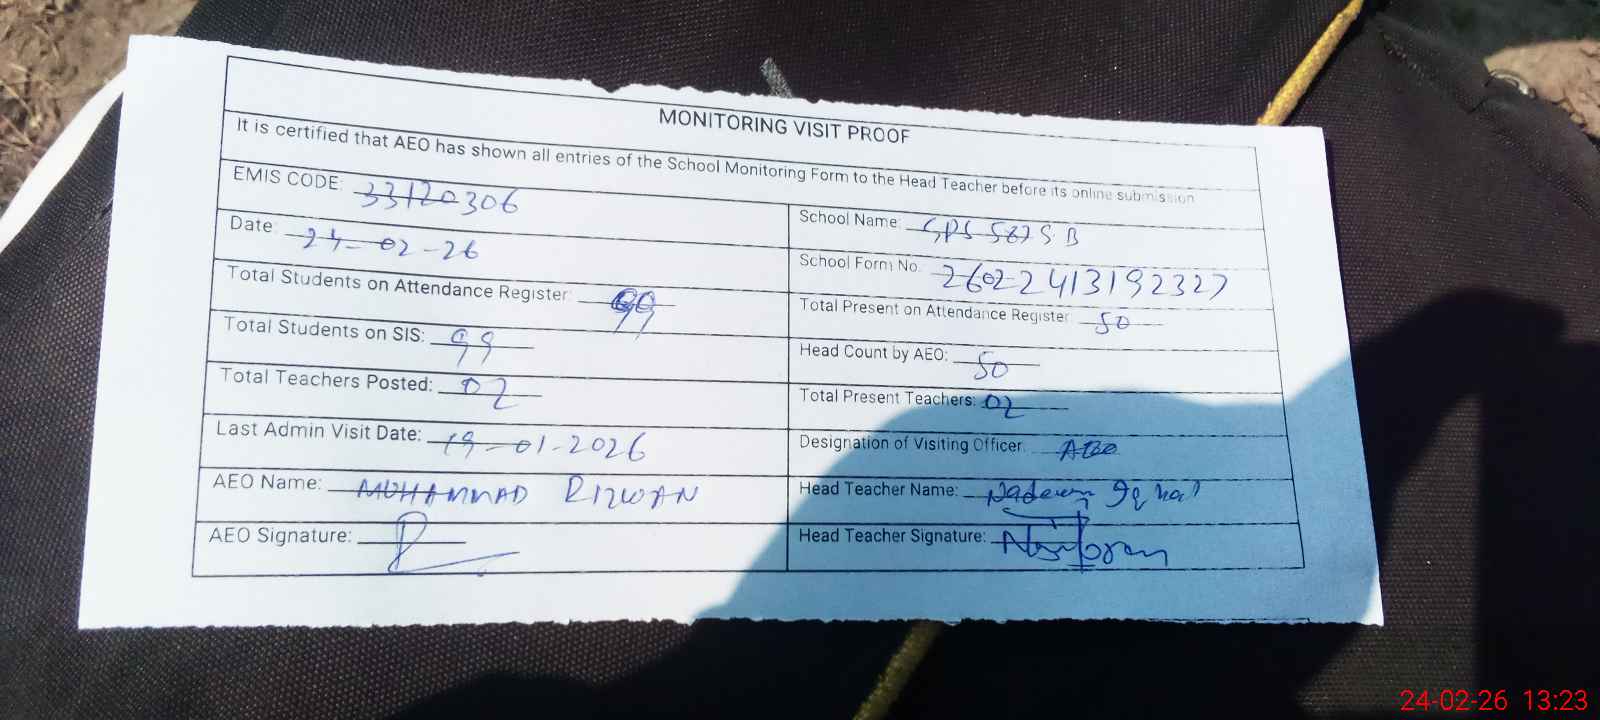 MONITORING VISIT PROOF
It is certified that AEO has shown all entries of the School Monitoring Form to the Head Teacher before its online submission
EMIS CODE: 33120306
School Name: GPS 587 S B
Date: 24-02-26
School Form No. 26022413192327
Total Students on Attendance Register: 99
Total Present on Attendance Register: 50
Total Students on SIS: 99
Head Count by AEO: 50
Total Teachers Posted: 02
Total Present Teachers: 02
Last Admin Visit Date: 19-01-2026
Designation of Visiting Officer: AEO
AEO Name: MUHAMMAD RIZWAN
Head Teacher Name: Nadeem Iqbal
AEO Signature:
Head Teacher Signature:
24-02-26 13:23